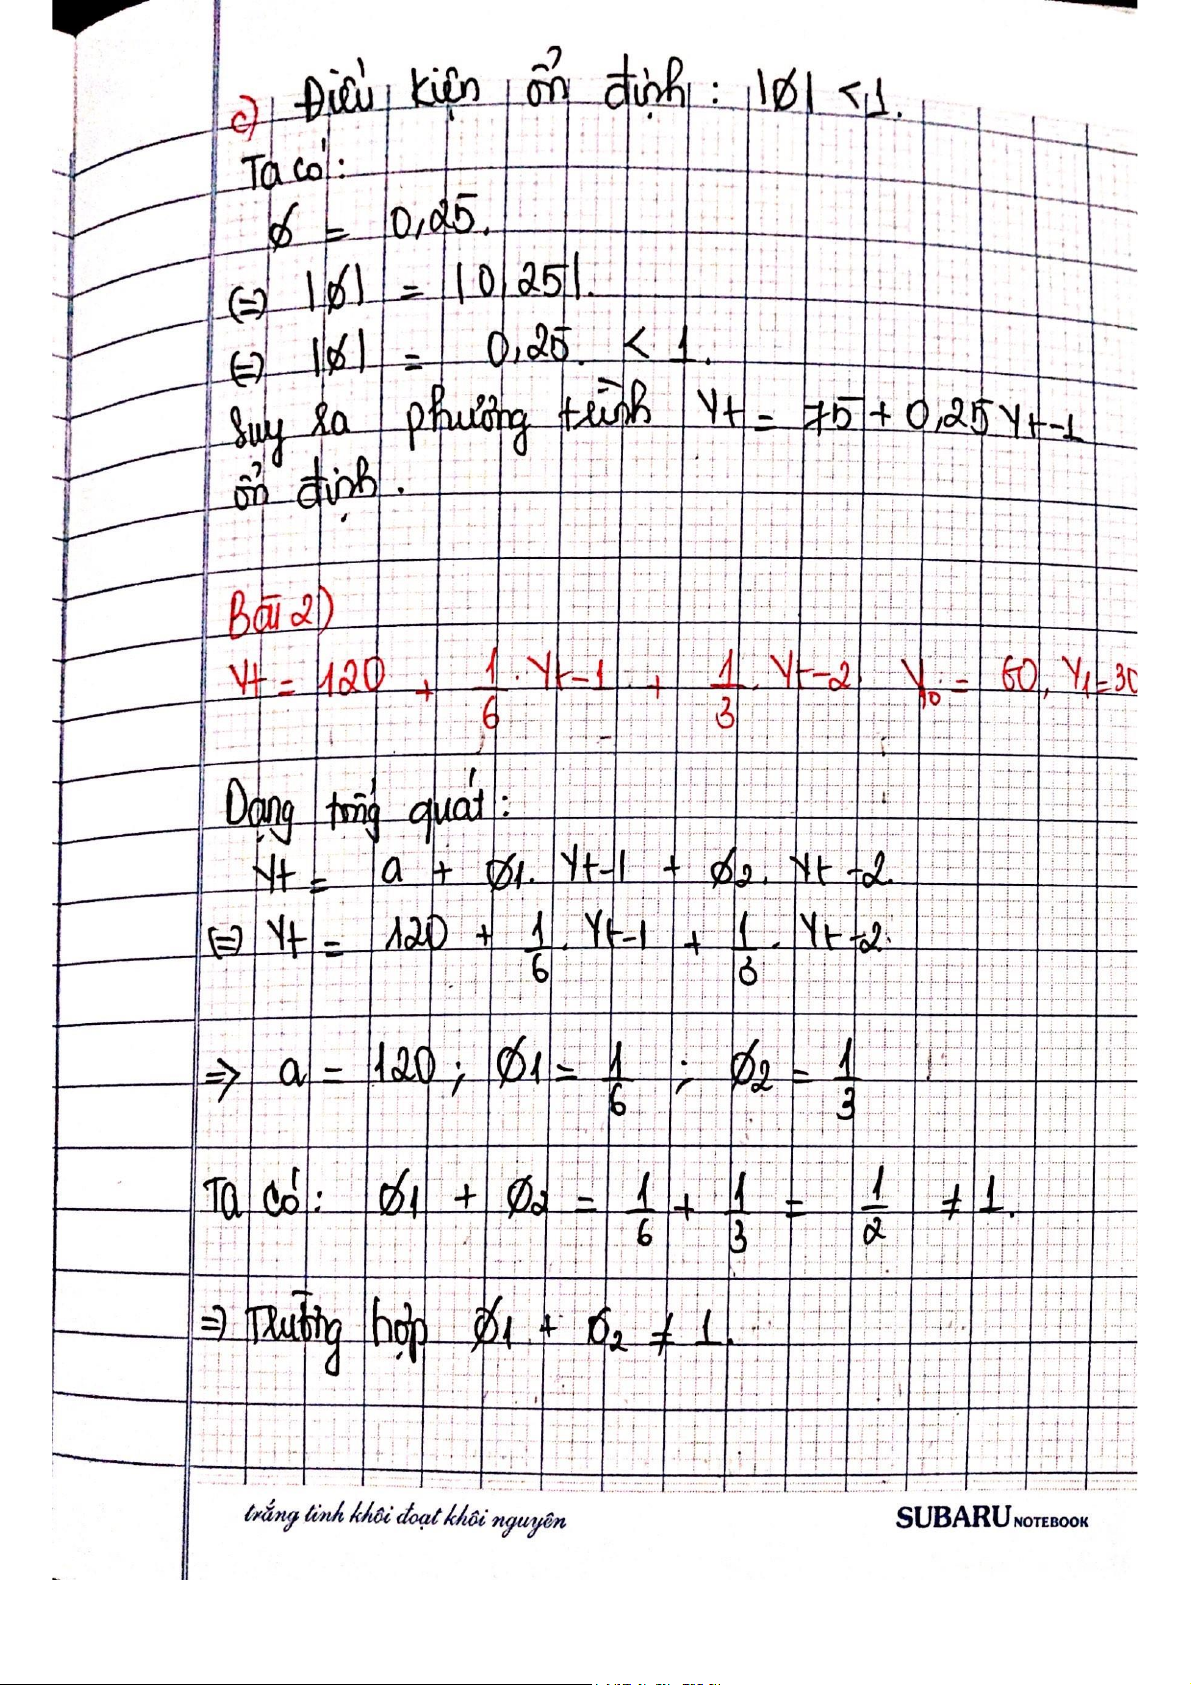 c) Điều kiện ổn định: |Ø| < 1.
Ta có:
Ø = 0,25.
(=) |Ø| = |0,25|.
(=) |Ø| = 0,25. < 1.
Suy ra phương trình Yt = 75 + 0,25Yt-1
ổn định.
Bài 2)
Yt = 120 + 1/6 . Yt-1 + 1/3 . Yt-2 Y0 = 60, Y1 = 30
Dạng tổng quát:
Yt = a + Ø1. Yt-1 + Ø2. Yt-2.
(=) Yt = 120 + 1/6 . Yt-1 + 1/3 . Yt-2.
=> a = 120; Ø1 = 1/6 ; Ø2 = 1/3
Ta có: Ø1 + Ø2 = 1/6 + 1/3 = 1/2 ≠ 1.
=> Trường hợp Ø1 + Ø2 ≠ 1.
trắng tinh khôi đoạt khôi nguyên SUBARU NOTEBOOK